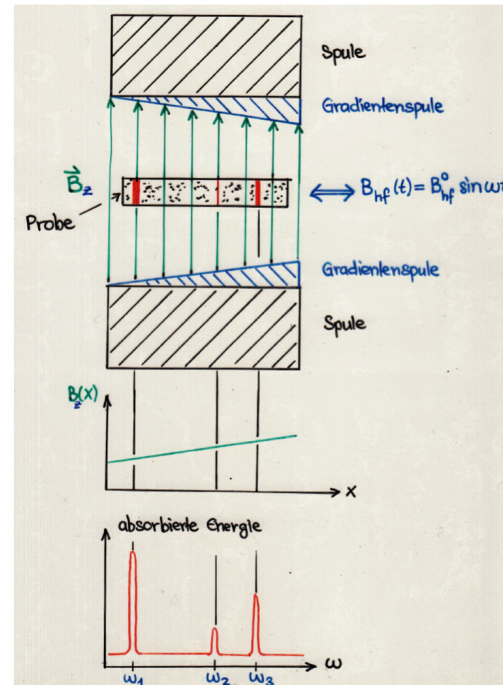 Spule
Gradientenspule
B⃗z
Probe
Bhf(t) = B⁰hf sin ω
Gradientenspule
Spule
Bz(x)
x
absorbierte Energie
ω
ω1 ω2 ω3